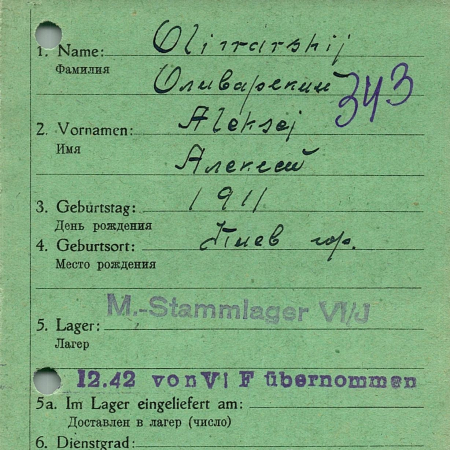 1. Name: Olivarskij
Фамилия Оливарский
343
2. Vornamen: Aleksej
Имя Алексей
3. Geburtstag: 1911
День рождения
4. Geburtsort: Киев гор.
Место рождения
M.-Stammlager VI/J
5. Lager:
Лагер
12.42 von VI F übernommen
5a. Im Lager eingeliefert am:
Доставлен в лагер (число)
6. Dienstgrad: